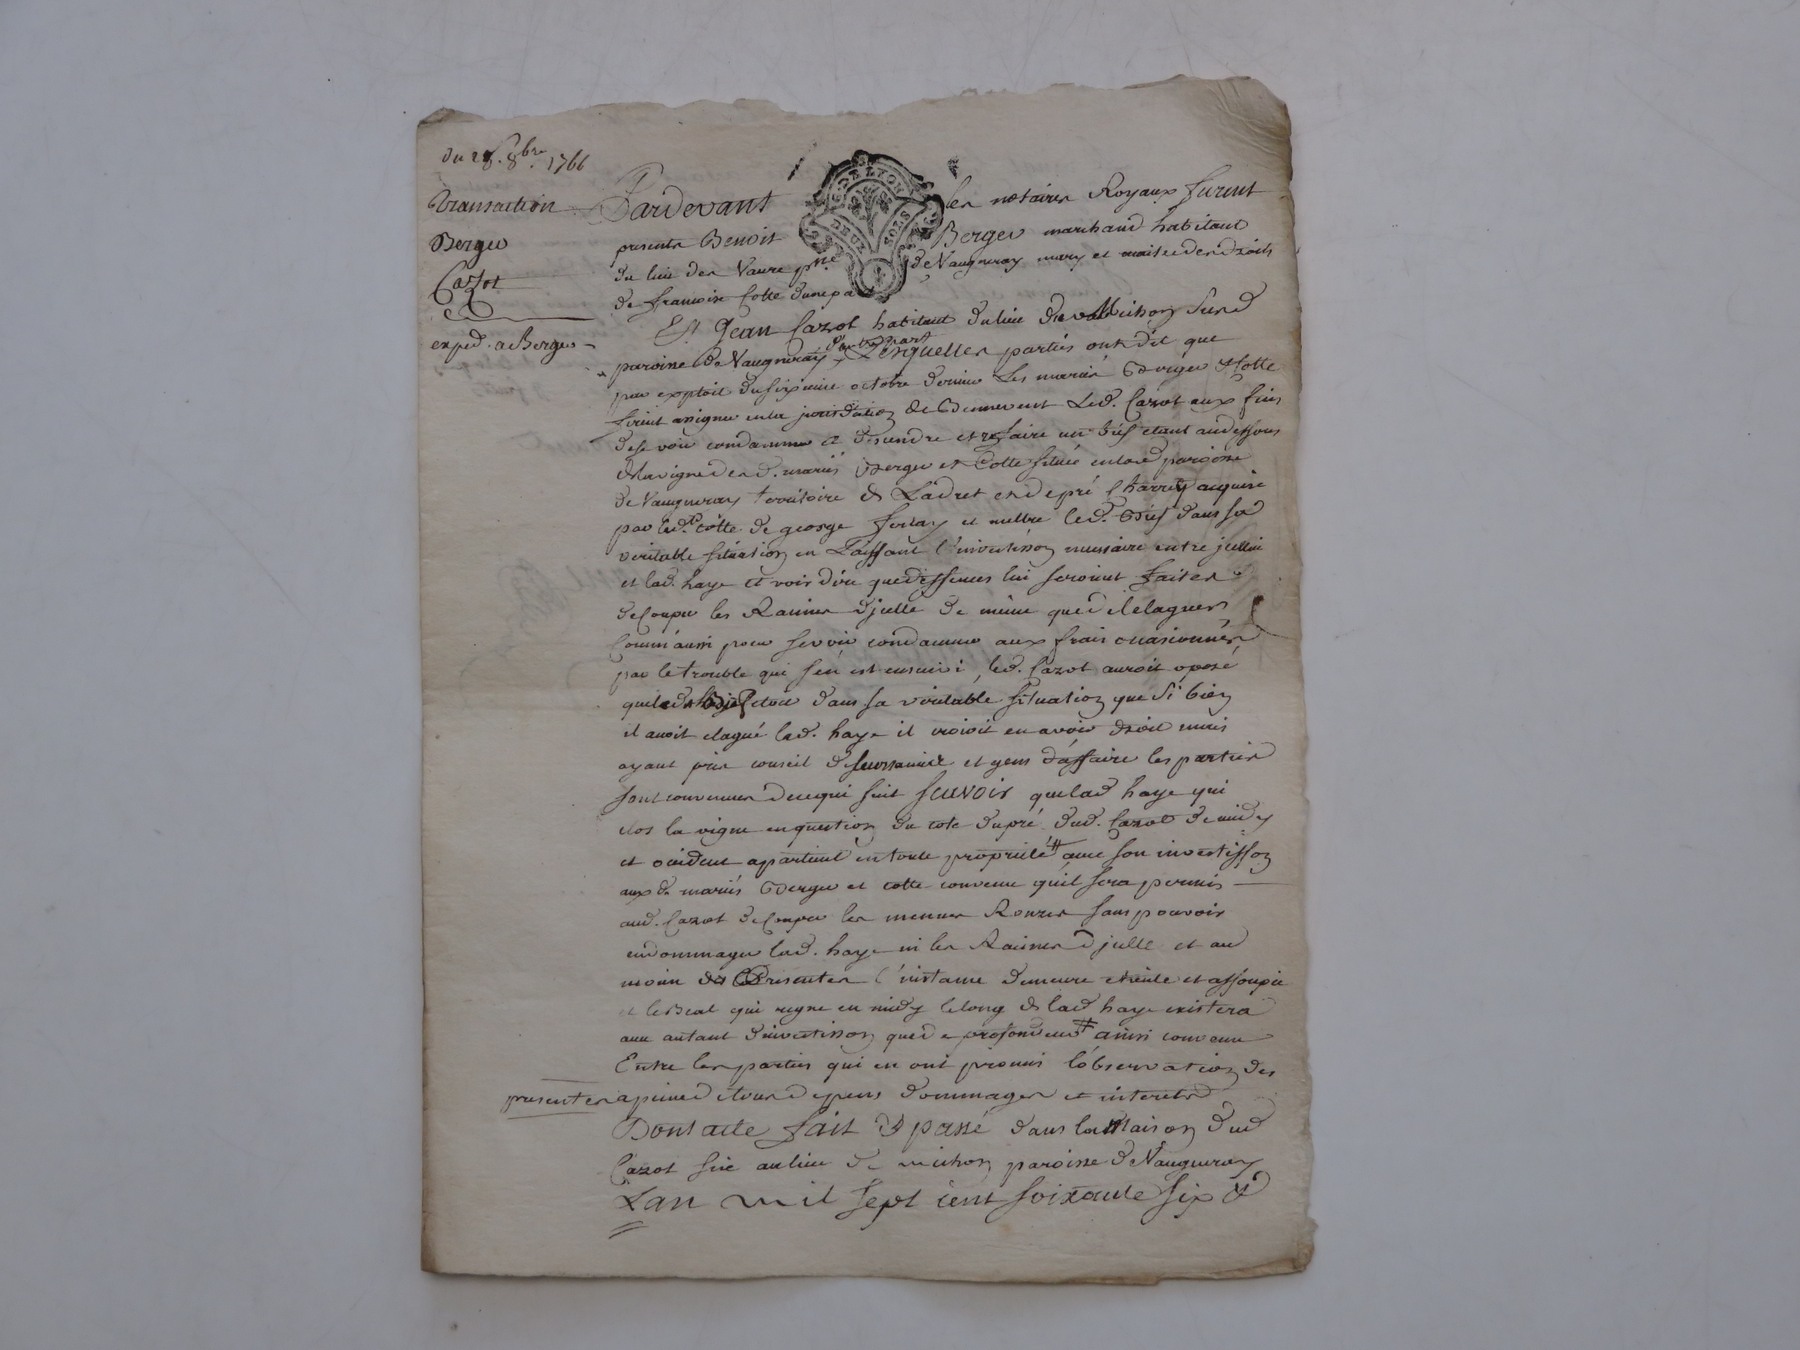 du 28. 8bre. 1766
Transaction
Berger
Cazot
exped. a Berger
G. DE LYON
DEUX SOLS
Pardevant les notaires Royaux furent
presents Benoit Berger marchand habitant
du lieu des Vaure psse de Vaugneray mary et maitre des droits
de francoise Cotte dune part
Et Jean Cazot habitant du lieu de Michon susd
paroisse de Vaugneray d'autre part Lesquelles parties ont dit que
par exploit du sixieme octobre dernier Les mariés Berger et Cotte
firent assigner en la jurisdiction de Benevent Led. Cazot aux fins
de se voir condamner a descendre et refaire un bief etant au dessous
de la vigne desd. mariés Berger et Cotte située en lad paroisse
de Vaugneray territoire de Ladret et de pré acquise
par led. Cotte de george et mettre led. Bief dans sa
veritable situation en Laissant l'investison necessaire entre jcelluy
et lad. haye et voir dire que deffenses lui seroient faites
de Couper les Racines d'jcelle de même que de l'elaguer
Comm'aussi pour se voir condamner aux frais occasionnés
par le trouble qui s'en est ensuivi, led. Cazot auroit oposé
que led Bief etoit dans sa veritable situation que si bien
il avoit elagué lad. haye il croioit en avoir droit mais
ayant pris conseil de leurs amis et gens d'affaire les parties
sont convenues de ce qui suit scavoir que lad haye qui
clos la vigne en question du coté du pré dud. Cazot de midy
et occident apartient en toute proprieté # avec son investisson
aux d. mariés Berger et Cotte convenu qu'il sera permis
aud. Cazot de Couper les menues Ronces sans pouvoir
endommager lad. haye ni les Racines d'jcelle et au
moien des Presentes l'instance demeure eteinte et assoupie
et le Beal qui regne en midy le long de lad haye existera
avec autant d'investisson que de profondeur # ainsi convenu
Entre les parties qui en ont promis l'observation des
presentes a peine de tous depens dommages et interets
Dont acte fait & passé dans la Maison dud
Cazot sise au lieu de michon paroisse de Vaugneray
L'an mil sept cent soixante six &